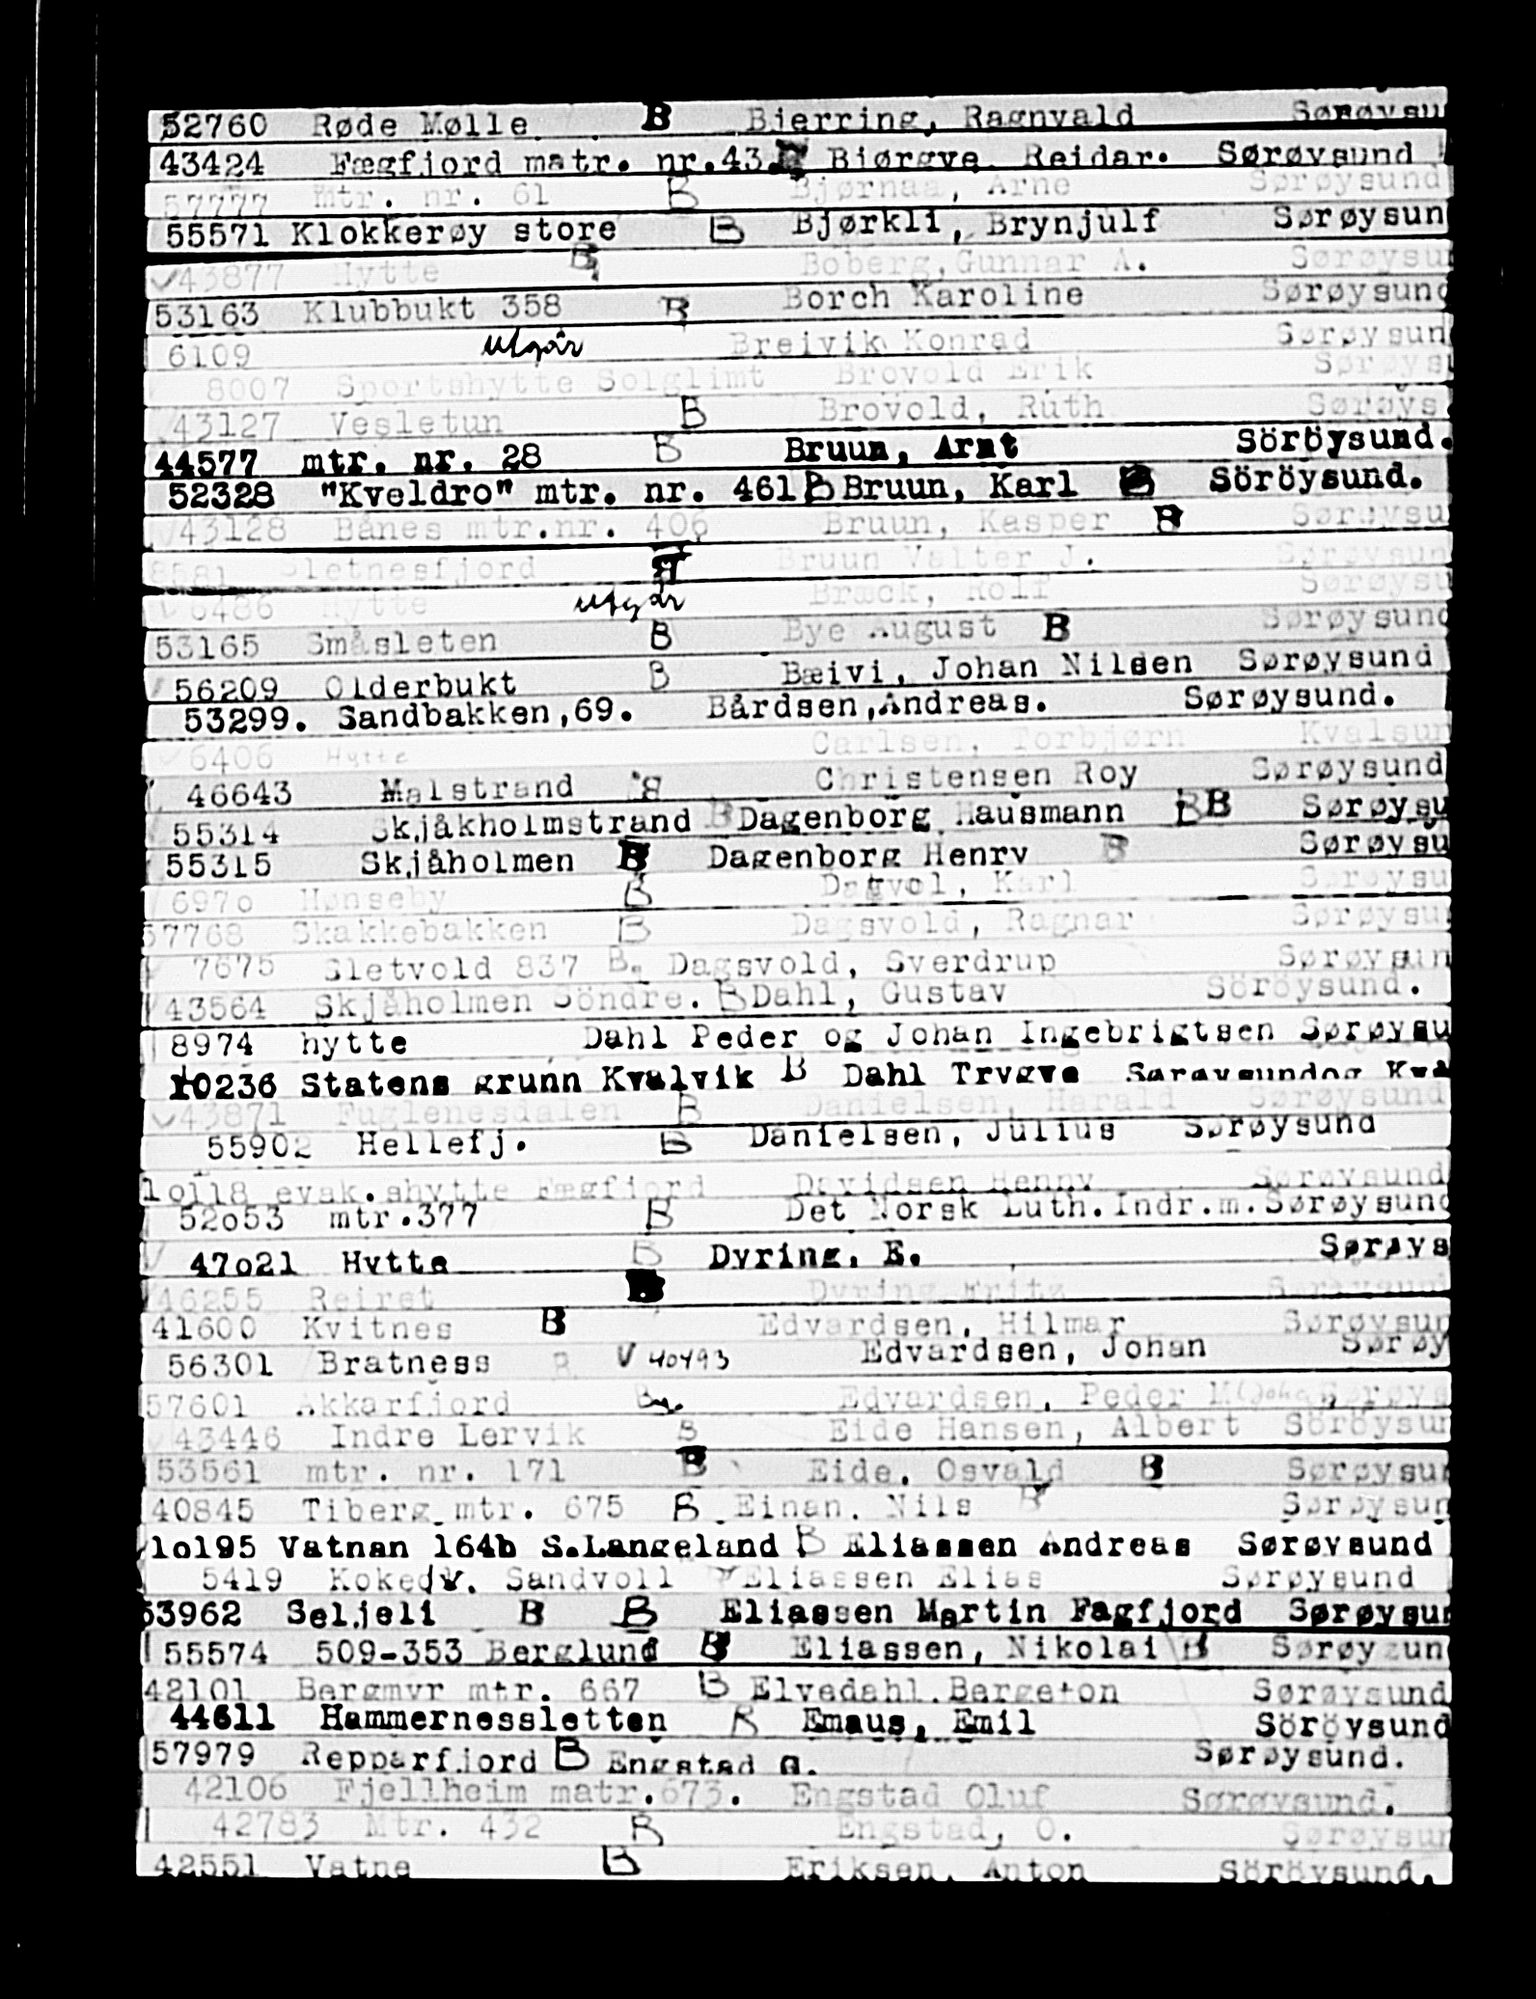 52760 Røde Mølle B Bjerring, Ragnvald Sørøysu
43424 Fægfjord matr. nr.43. Bjørgve Reidar. Sørøysund
57777 Mtr. nr. 61 B Bjørnaa, Arne Sørøysund
55571 Klokkerøy store B Bjørkli, Brynjulf Sørøysun
43877 Hytte B Boberg, Gunnar A. Sørøysu
53163 Klubbukt 358 B Borch Karoline Sørøysund
6109 utgår Breivik Konrad Sørøysund
8007 Sportshytte Solglimt Brovold Erik Sørøys
43127 Vesletun B Brovold, Ruth Sørøys
44577 mtr. nr. 28 B Bruun, Arnt Söröysund.
52328 "Kveldro" mtr. nr. 461 B Bruun, Karl B Söröysund.
43128 Bånes mtr.nr. 406 Bruun, Kasper B Sørøysu
8581 Sletnesfjord B Bruun Valter J. Sørøysun
6486 Hytte utgår Bræck, Rolf Sørøysu
53165 Småsleten B Bye August B Sørøysund
56209 Olderbukt B Bæivi, Johan Nilsen Sørøysund
53299. Sandbakken,69. Bårdsen,Andreas. Sørøysund.
6406 Hytte Carlsen, Torbjørn Kvalsun
46643 Malstrand B Christensen Roy Sørøysund
55314 Skjåkholmstrand B Dagenborg Hausmann B B Sørøysu
55315 Skjåholmen B Dagenborg Henry B Sørøysu
697o Hønseby B Dagvol, Karl Sørøysu
57768 Skakkebakken B Dagsvold, Ragnar Sørøysu
7675 Sletvold 837 B. Dagsvold, Sverdrup Sørøysun
43564 Skjåholmen Söndre. B Dahl, Gustav Söröysund.
8974 hytte Dahl Peder og Johan Ingebrigtsen Sørøysu
10236 Statens grunn Kvalvik B Dahl Trygve Sørøysundog Kva
43871 Fuglenesdalen B Danielsen, Harald Sørøysund
55902 Hellefj. B Danielsen, Julius Sørøysund
1o118 evak.shytte Fægfjord Davidsen Henny Sørøysund
52o53 mtr.377 B Det Norsk Luth.Indr.m. Sørøysund
47o21 Hytte B Dyring, E. Sørøys
46255 Reiret Dyring Fritz Sørøysund
41600 Kvitnes B Edvardsen, Hilmar Sørøysun
56301 Bratness B V 40493 Edvardsen, Johan Sørøy
57601 Akkarfjord B Edvardsen, Peder M Sørøys
43446 Indre Lervik B Eide Hansen, Albert Söröysun
53561 mtr. nr. 171 B Eide, Osvald B Sørøysun
40845 Tiberg mtr. 675 B Einan, Nils B Sørøysun
1o195 Vatnan 164b S.Langeland B Eliassen Andreas Sørøysund
5419 Kokedv. Sandvoll Eliassen Elias Sørøysund
53962 Seljeli B B Eliassen Martin Fagfjord Sørøysun
55574 509-353 Berglund B Eliassen, Nikolai B Sørøysun
42101 Bergmyr mtr. 667 B Elvedahl, Bergeton Sørøysund
44611 Hammernessletten B Emaus, Emil Söröysund
57979 Repparfjord B Engstad O. Sørøysund.
42106 Fjellheim matr.673. Engstad Oluf Sørøysund.
42783 Mtr. 432 B Engstad, O. Sørøysun
42551 Vatne B Eriksen, Anton Söröysund.